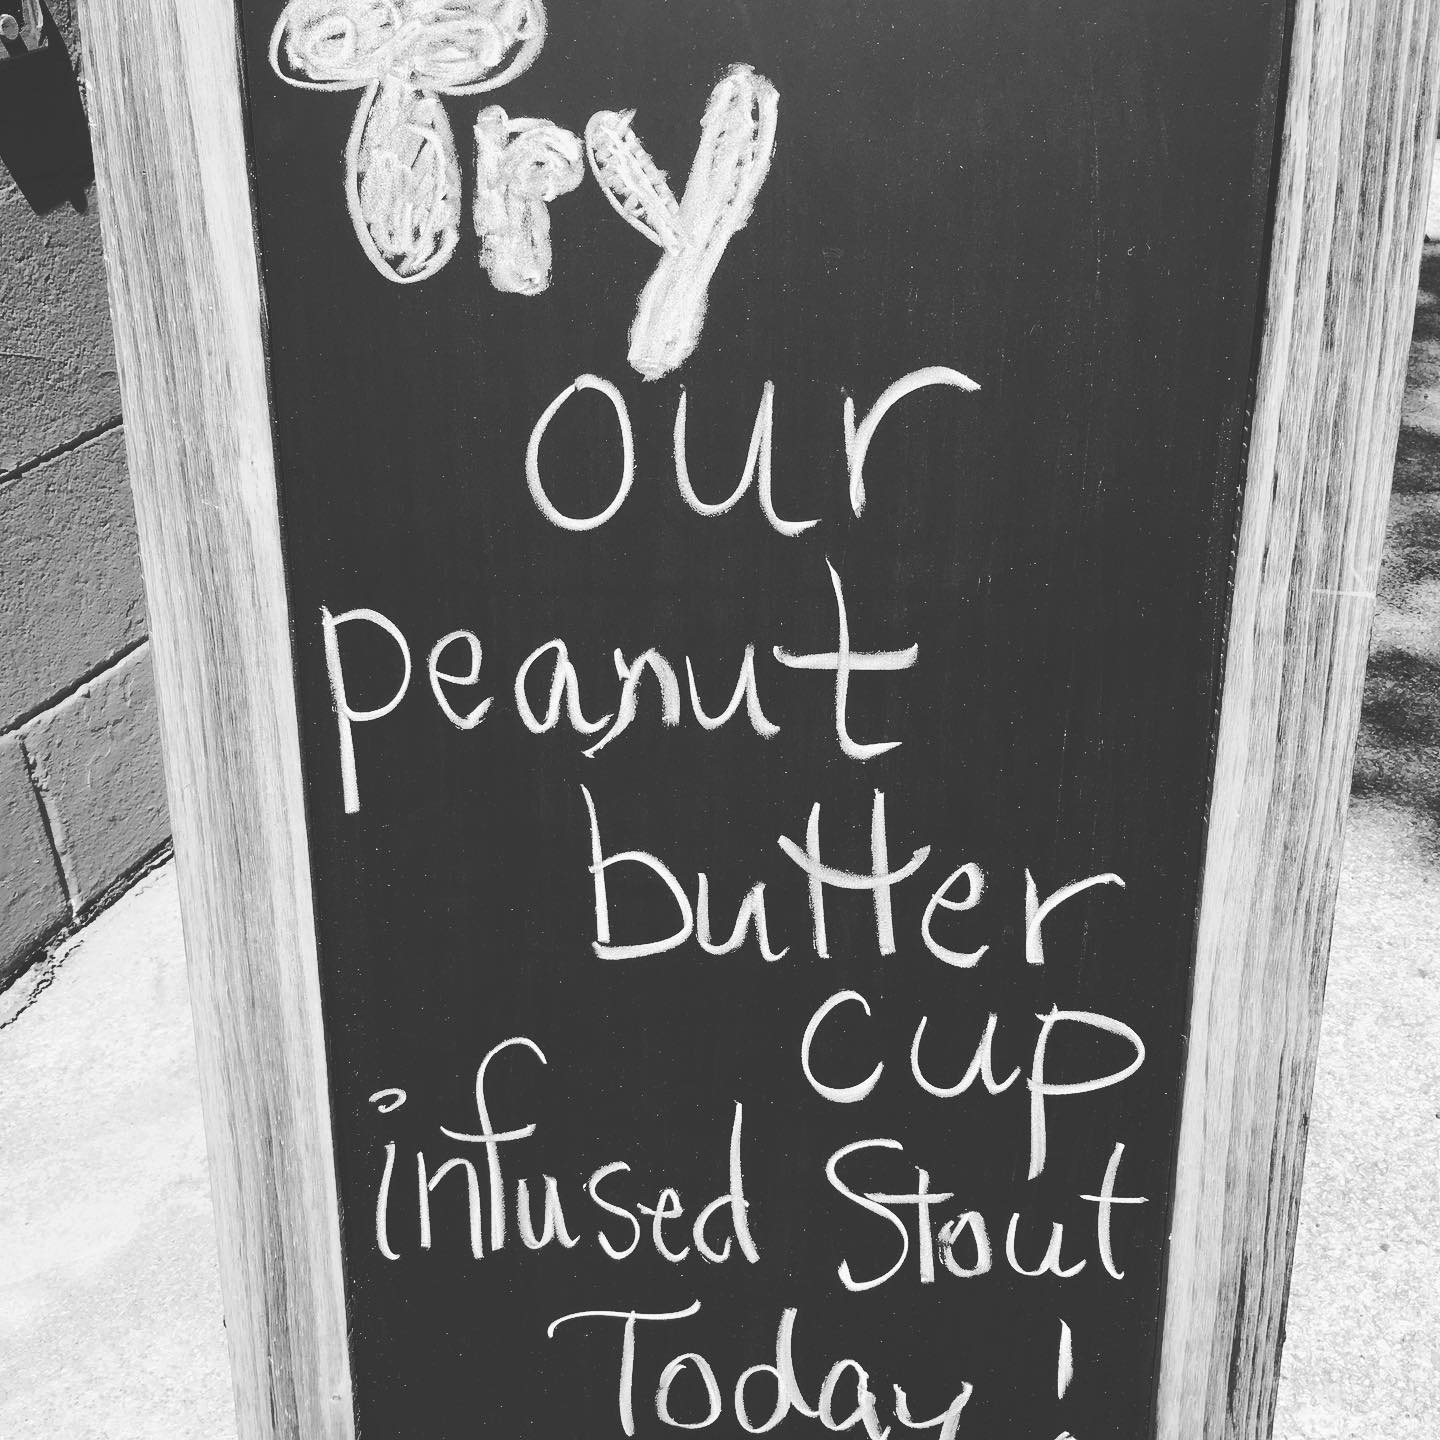 Try
our
peanut
butter
cup
infused Stout
Today!